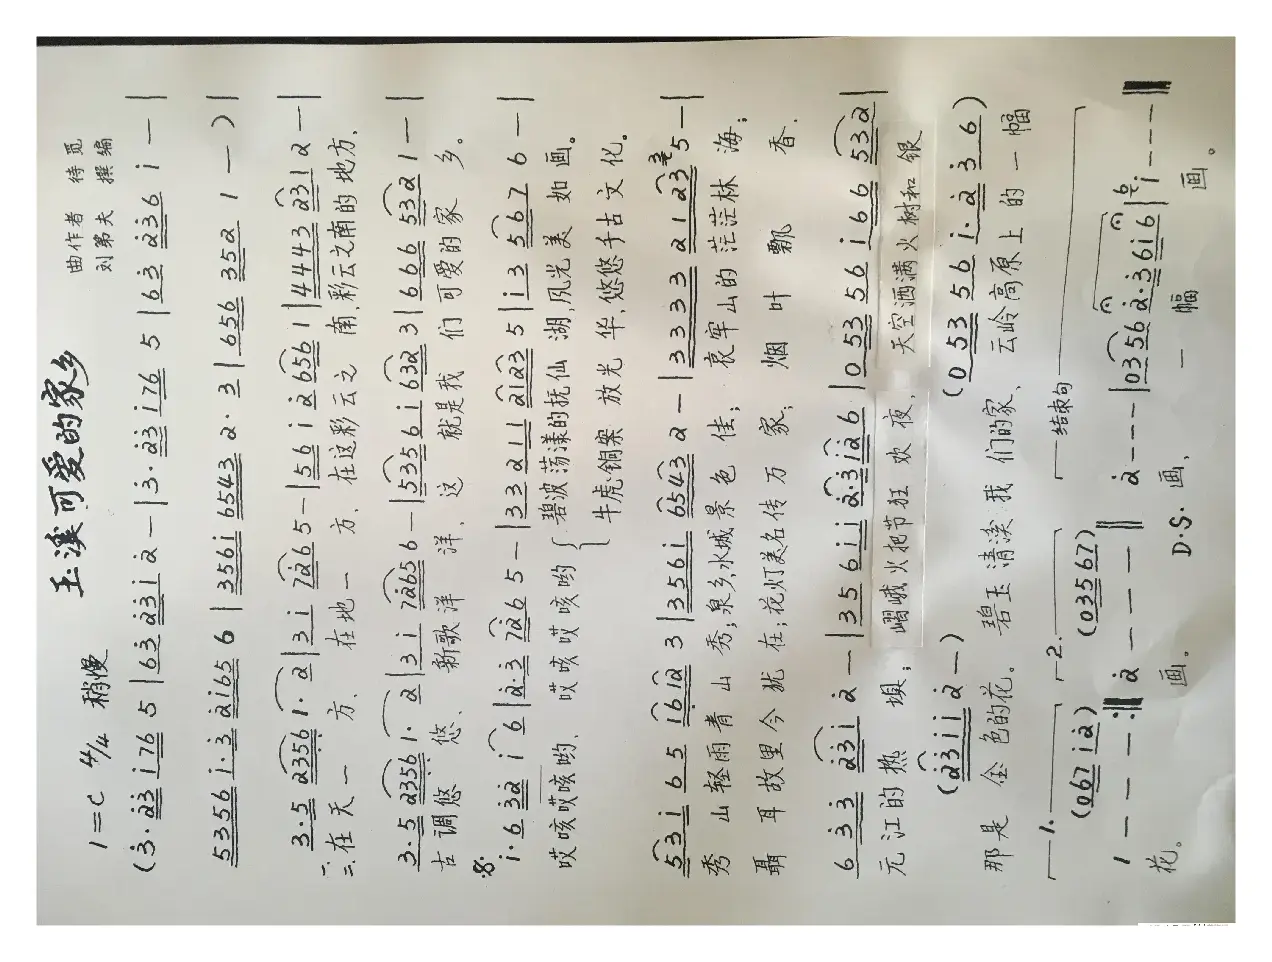 玉溪可爱的家乡
1=C 4/4 稍慢
曲作者 待觅
刘第夫 撰编
(3·23 176 5 | 63 231 2 — | 3·23 176 5 | 63 236 1 — |
5356 1·3 2165 6 | 3561 6543 2·3 | 656 352 1 — ) |
3·5 2356 1·2 | 31 7265 — | 561 2656 1 | 4443 231 2 — |
一.二.在天一方、在地一方、在这彩云之南,彩云之南的地方.
3·5 2356 1·2 | 31 72656 — | 53561 632 3 | 666 532 1 — |
古调悠悠、新歌洋洋、这就是我们可爱的家乡。
1·6 32 1 6 | 2·3 726 5 — | 33 211 2123 5 | 13 567 6 — |
哎咳哎咳哟、哎咳哎咳哟 碧波荡漾的抚仙湖,风光美如画。
牛虎铜案放光华,悠悠千古文化。
531 65 1612 3 | 3561 6543 2 — | 3333 2123 5 — |
秀山轻雨青山秀;泉乡,水城景色佳;哀牢山的茫茫林海;
聂耳故里今犹在;花灯美名传万家;烟叶飘香.
6 33 231 2 — | 35 611 2·3126 | 053 56 166 532 |
元江的热坝;嶍峨火把节狂欢夜,天空洒满火树和银
(2311 2 —) (053 56 1·2 3 6)
那是金色的花。碧玉清溪我们的家、云岭高原上的一幅
1. 2. 结束句
(067 12) (03567)
1 — — — :‖ 2 — — — ‖ 2 — — — | 0356 2·3616 | 1 — — — ‖
花。画。 D.S. 画, 一幅画。